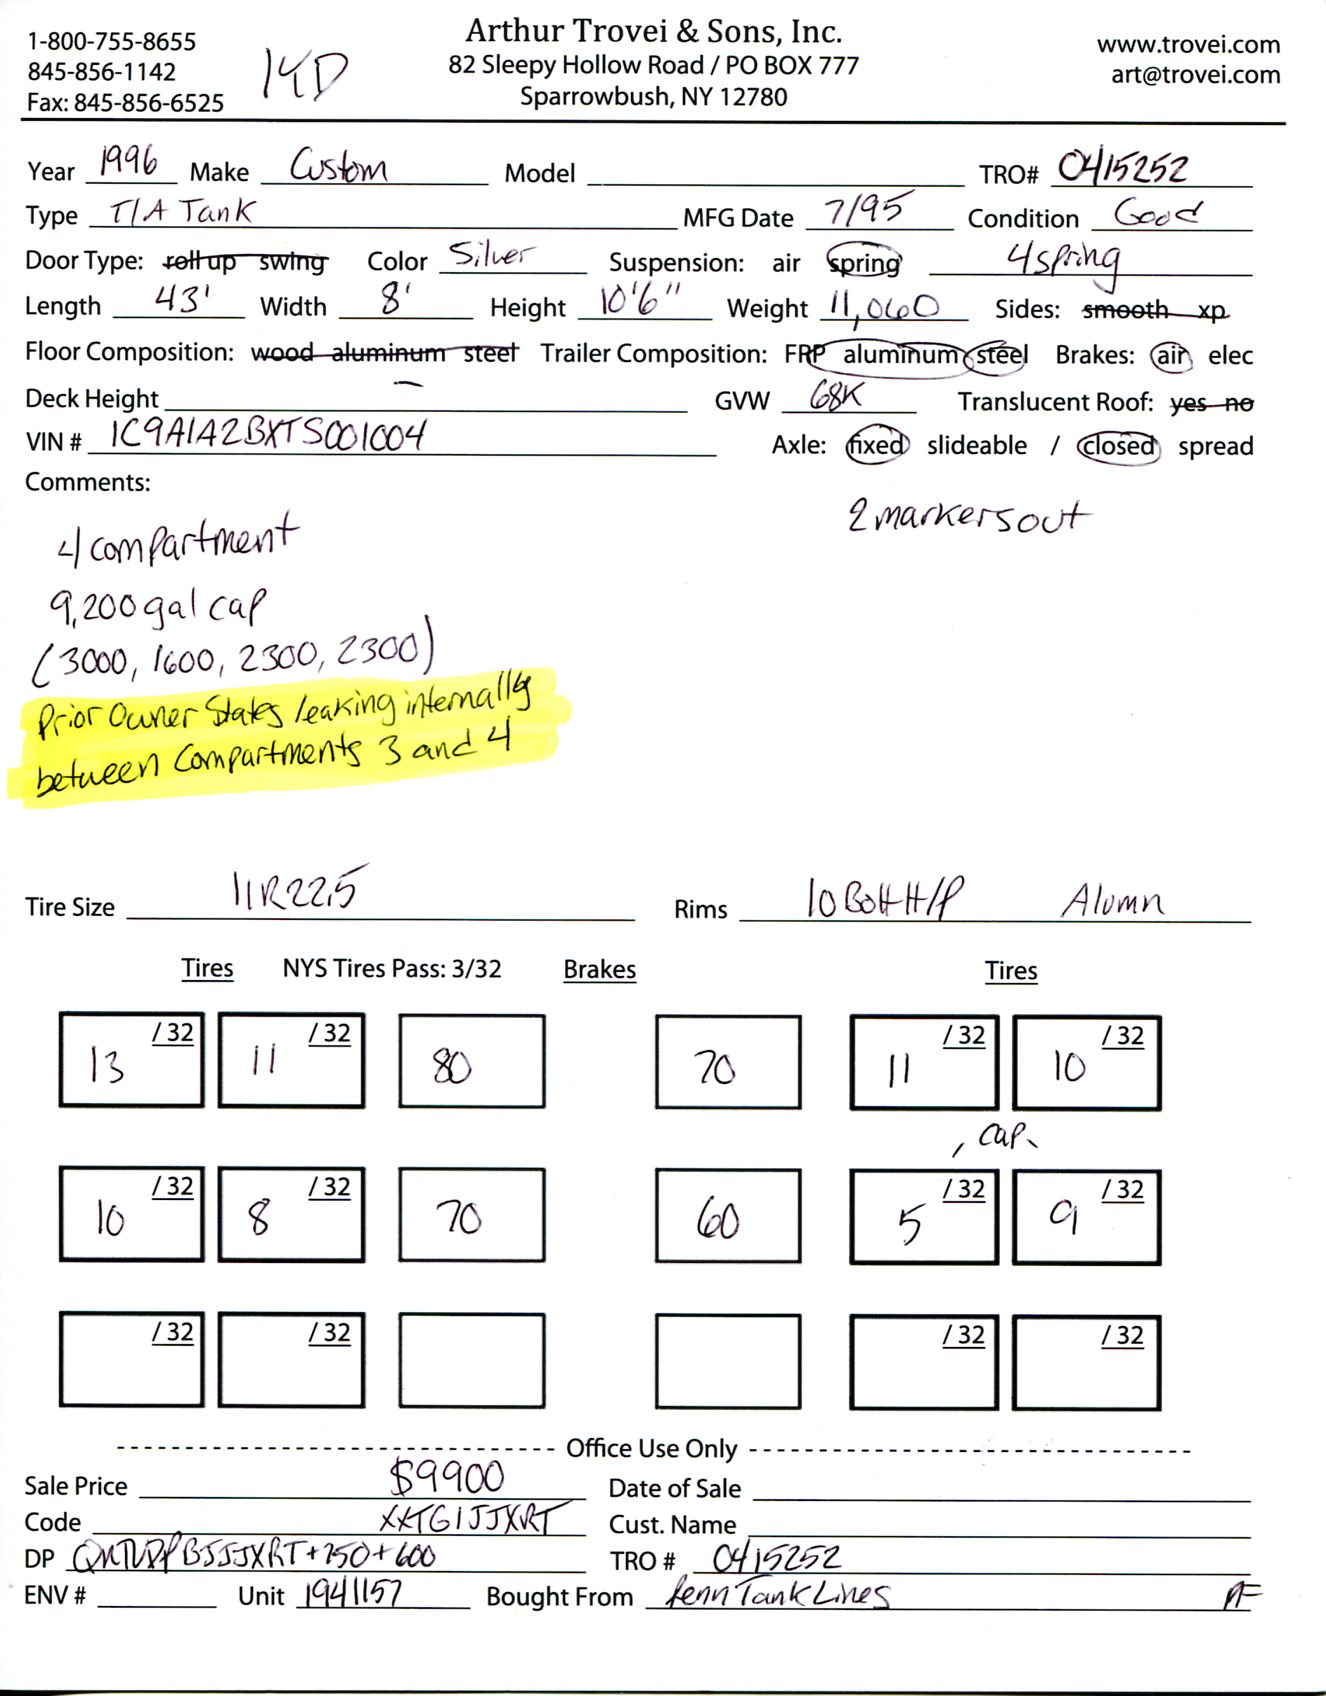 1-800-755-8655
845-856-1142
Fax: 845-856-6525
Arthur Trovei & Sons, Inc.
82 Sleepy Hollow Road / PO BOX 777
Sparrowbush, NY 12780
www.trovei.com
art@trovei.com
Year 1996 Make Custom Model TRO# 0415252
Type T/A Tank MFG Date 7/95 Condition Good
Door Type: roll up swing Color Silver Suspension: air spring 4 spring
Length 43' Width 8' Height 10'6" Weight 11,060 Sides: smooth xp
Floor Composition: wood aluminum steel Trailer Composition: FRP aluminum steel Brakes: air elec
Deck Height — GVW 68K Translucent Roof: yes no
VIN # 1C9A1A2BXTS001004 Axle: fixed slideable / closed spread
Comments:
2 markers out
4 compartment
9,200 gal cap
(3000, 1600, 2300, 2300)
Prior Owner States leaking internally
between Compartments 3 and 4
Tire Size 11R22.5 Rims 10 Bolt H/P Alumn
Tires NYS Tires Pass: 3/32 Brakes Tires
13 /32 11 /32 80 70 11 /32 10 /32
, cap.
10 /32 8 /32 70 60 5 /32 9 /32
/32 /32 /32 /32
Office Use Only
Sale Price $9900 Date of Sale
Code XXTGIJJXRT Cust. Name
DP +750+600 TRO # 0415252
ENV # Unit 1941157 Bought From Penn Tank Lines